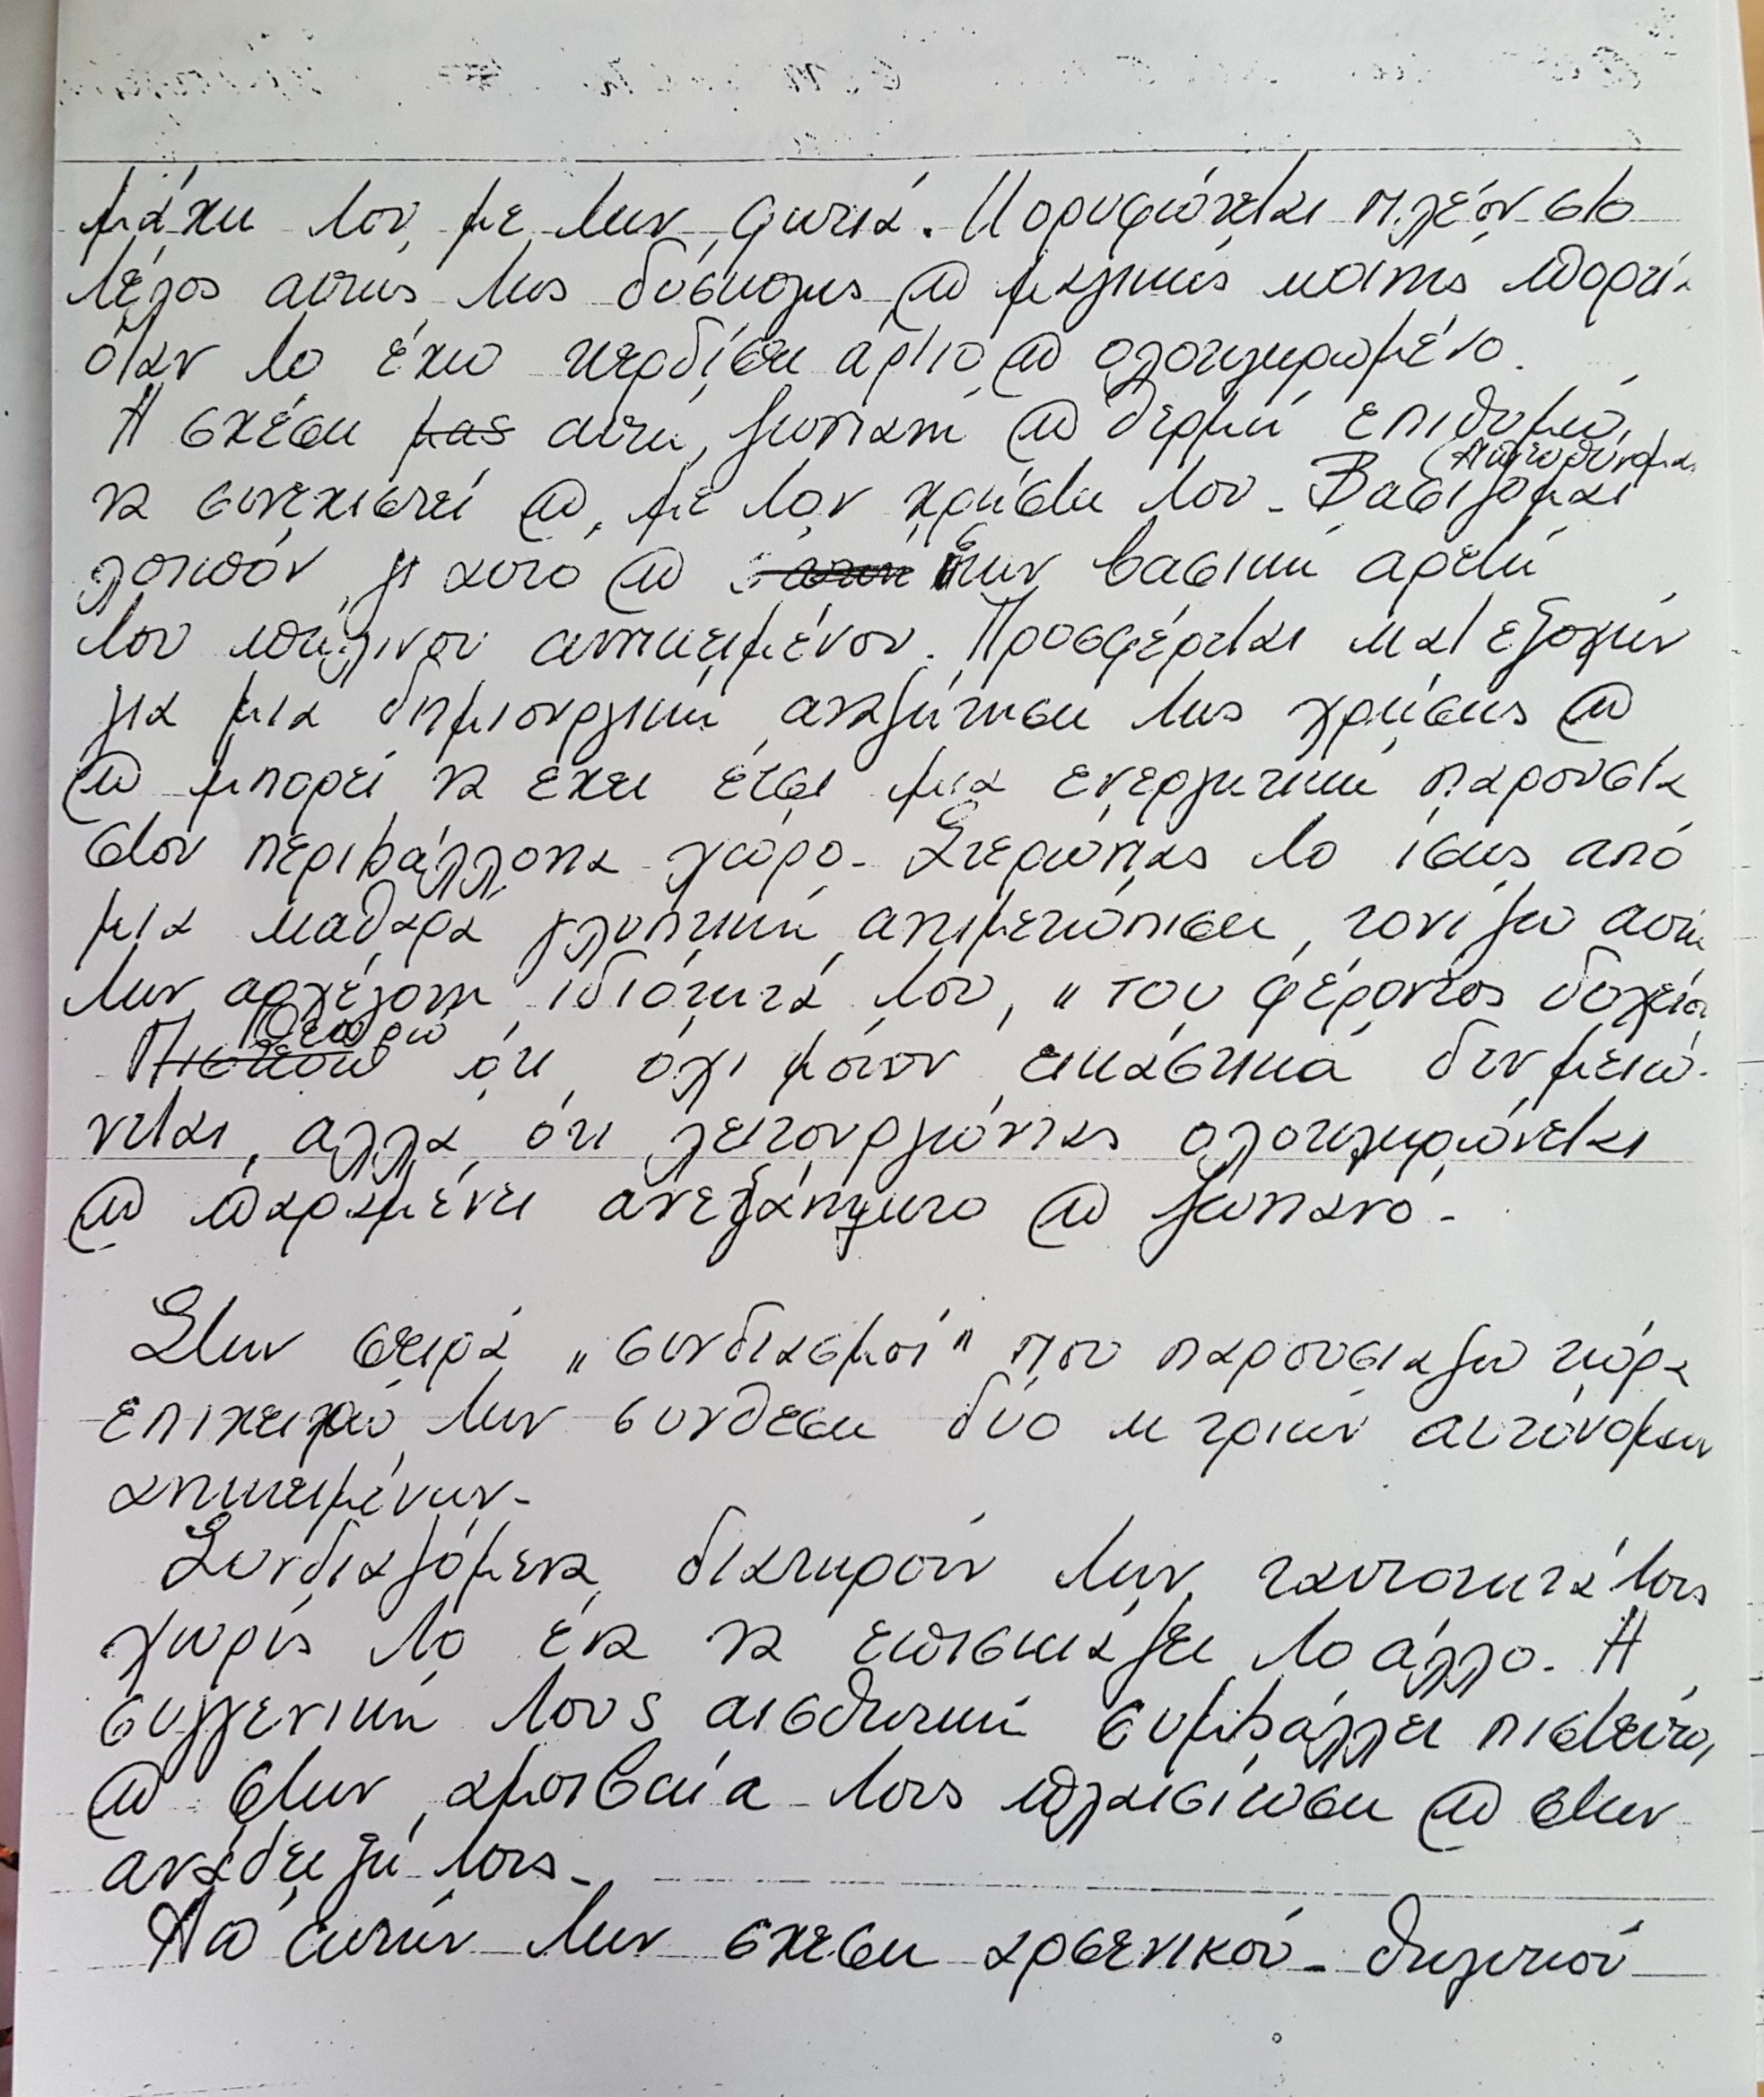 μάχη του, με την φωτιά. Κορυφώνεται πλέον στο
τέλος αυτής της δύσκολης @ μαγικής κοινής πορεί-
όταν το έχω κερδίσει άρτιο @ ολοκληρωμένο.
Η σχέση μας αυτή, ζωντανή @ θερμή επιθυμώ,
να συνεχιστεί @, με τον χρήστη του - Βασίζομαι
λοιπόν, γι αυτό @ στην βασική αρετή
του πήλινου αντικειμένου. Προσφέρεται κατ εξοχήν
για μια δημιουργική αναζήτηση της χρήσης @
@ μπορεί να έχει έτσι μια ενεργητική παρουσία
στον περιβάλλοντα χώρο - Στερώντας το ίσως από
μια καθαρά γλυπτική αντιμετώπιση, τονίζω αυτή
την αρχέγονη ιδιότητά του, "του φέροντος δοχείου
Θεωρώ
Πιστεύω ότι, όχι μόνον εικαστικά δεν μειώ-
νεται, αλλά ότι λειτουργώντας ολοκληρώνεται
@ παραμένει ανεξάντλητο @ ζωντανό -
Στην σειρά "συνδιασμοί" που παρουσιάζω τώρα
επιχειρώ την σύνθεση δύο η τριών αυτόνομων
αντικειμένων -
Συνδιαζόμενα, διατηρούν την ταυτότητά τους
χωρίς το ένα να επισκιάζει το άλλο. Η
συγγενική τους αισθητική συμβάλλει πιστεύω,
@ στην αμοιβαία τους πλαισίωση @ στην
ανάδειξή τους -
Απ αυτήν την σχέση αρσενικού - θηλυκού